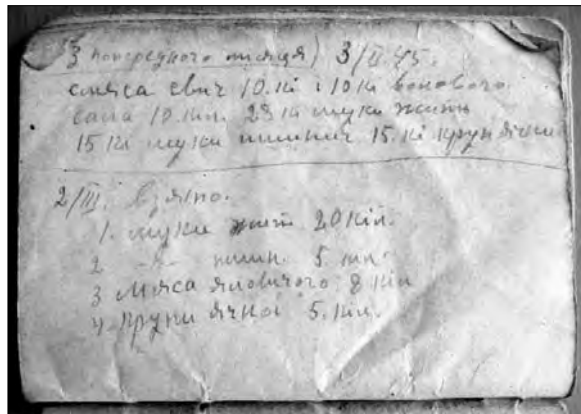 З попереднього місяця) 3/II 45.
мяса свич 10. кі і 10 кі
сала 10. кіл. 28 кі муки житн
15 кі муки пшенич 15. кі круп ячни
2/III. Взятно.
1. муки жит 20 кіл.
2 -"- пшин. 5 кіл.
3 Мяса яловичого 8 кіл
4. Крупи ячної 5. кіл.